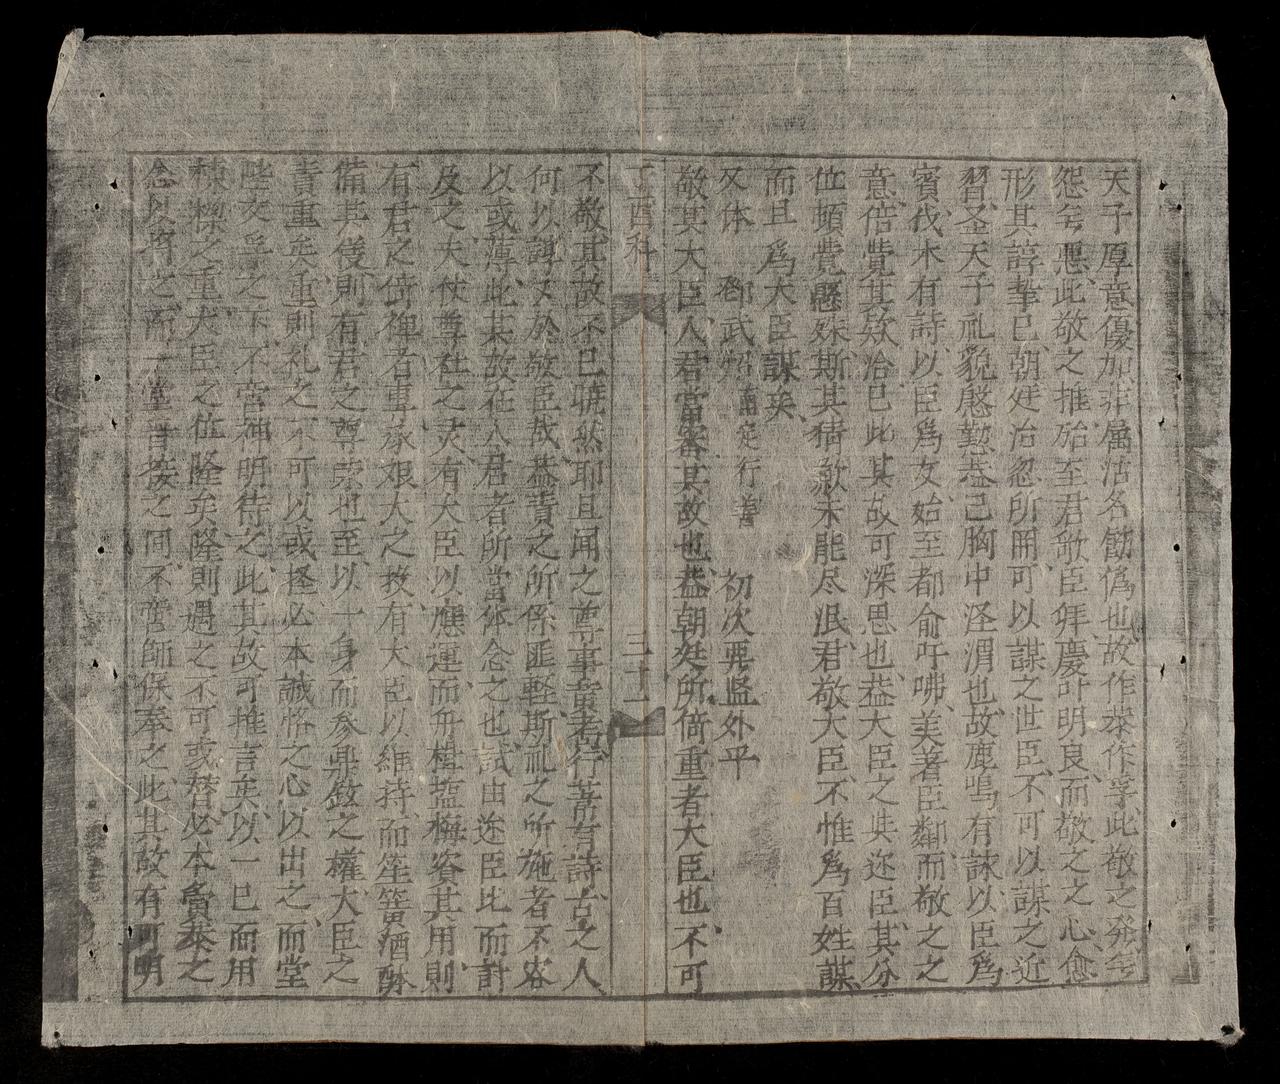 天子厚意優加非属沽名飭偽也故作恭作孚此敬之発全
怨全悪此敬之推殆至君敬臣拜慶叶明良而敬之之心愈
形其諄挚已朝廷治忽所關可以謀之世臣不可以謀之近
習圣天子礼貌慇懃葢已胸中泾渭也故鹿鳴有詠以臣爲
賓伐木有詩以臣爲友始至都俞吁咈美著臣鄰而敬之之
意倍覺其欵洽已此其故可深思也葢大臣之與迩臣其分
位頓覺懸殊斯其猜敜未能尽泯君敬大臣不惟爲百姓謀
而且爲大臣謀矣
又体 武 南定行善 初次覃监外平
敬其大臣人君當審其故也葢朝廷所倚重者大臣也不可
丁酉科 三十二
不敬其故不已暁然耶且闻之尊事黄耇行葦有詩古之人
何以諄〻於敬臣哉葢責之所係匪輕斯礼之所施者不容
以或薄此其故在人君者所當体念之也試由迩臣比而計
及之夫仗尊社之灵有大臣以應運而舟楫塩梅賚其用則
有君之倚裨者重承艰大之投有大臣以維持而笙簧酒醴
備其優則有君之尊崇也至以一身而参鼎鉉之權大臣之
責重矣重則礼之不可以或怪必本誠恪之心以出之而堂
陛交孚之下不啻神明待之此其故可推言矣以一已而用
棟樑之重大臣之位隆矣隆則遇之不可或替必本夤恭之
念以將之而一堂晋接之间不啻師保奉之此其故有可明